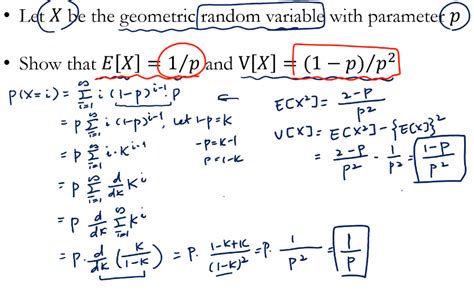 • Let X be the geometric random variable with parameter p
• Show that E[X] = 1/p and V[X] = (1 − p)/p²
P(X=i) = Σ_{i=1}^{∞} i (1-p)^{i-1} · p
= p Σ_{i=1}^{∞} i (1-p)^{i-1}, Let 1-p=K
= p Σ_{i=1}^{∞} i·K^{i-1}
-p=K-1
p=1-K
= p Σ_{i=1}^{∞} d/dK K^i
= p d/dK Σ_{i=1}^{∞} K^i
= p. d/dK (K/(1-K)) = p. (1-K+K)/(1-K)² = p. 1/p² = 1/p
E[X²] = (2-p)/p²
V[X] = E[X²] - {E[X]}²
= (2-p)/p² - 1/p² = (1-p)/p²